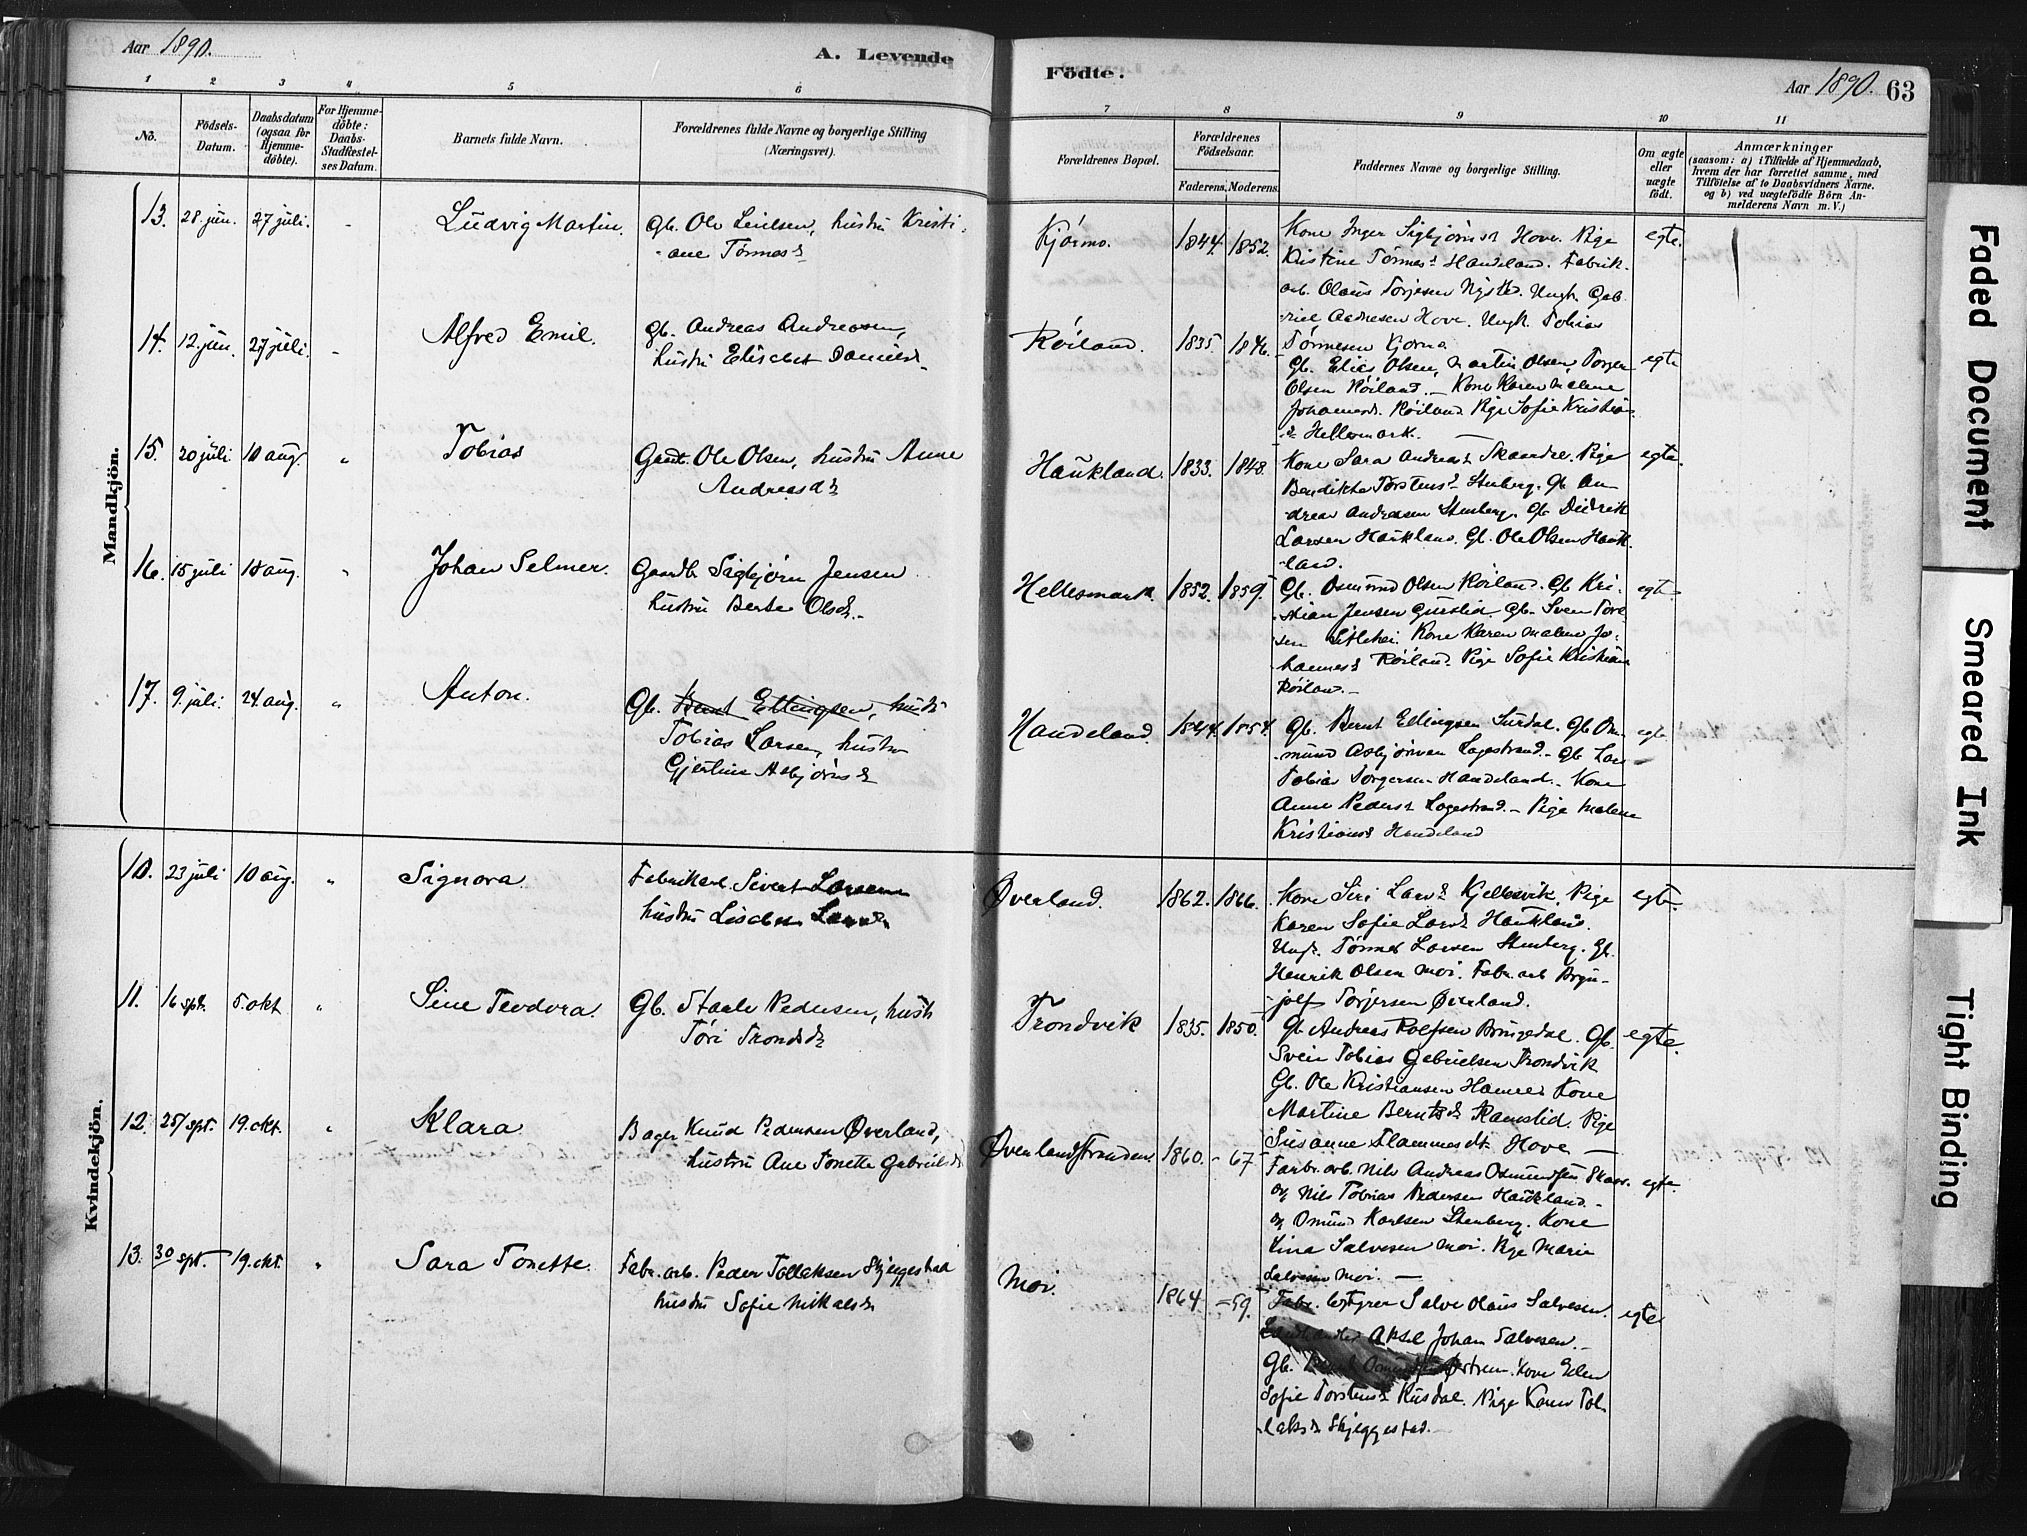 Aar 1890.
A. Levende
Födte.
Aar 1890. 63
1 2 3 4 5 6 7 8 9 10 11
No.
Födsels-Datum.
Daabsdatum (ogsaa for Hjemmedöbte).
For Hjemmedöbte: Daabs-Stadfestelses Datum.
Barnets fulde Navn.
Forældrenes fulde Navne og borgerlige Stilling (Næringsvei).
Forældrenes Bopæl.
Forældrenes Födselsaar.
Faderens. Moderens.
Faddernes Navne og borgerlige Stilling.
Om ægte eller uægte födt.
Anmærkninger
(saasom: a) i Tilfælde af Hjemmedaab, hvem der har forrettet samme, med Tilföielse af to Daabsvidners Navne. og b) ved uægtefödte Börn Anmelderens Navn m. V.)
Mandkjön.
13. 28 jun. 27 juli. Ludvig Martin. Gb. Ole hustru Kristi-
ane Tønnesd
Kjørmo. 1844. 1852. egte.
Kone Inger Sigbjørnsd Hove. Pige
Kristine Tønnesd Handeland. Fabrik-
arb. Olaus Torjesen Ungk. Gab-
riel Andresen Hove. Ungk. Tobias
Tønnesen Kjørmo
14. 12 jun. 27 juli. Alfred Emil. Gb. Andreas Andreasen,
hustru Elisebet Danielsd.
Røiland. 1835. 1846. egte
Gb. Elias Olsen, Martin Olsen, Torger
Olsen Røiland. – Kone Karen Malene
Johannesd. Røiland. Pige Sofie Kristians
d Hellesmark. –
15. 20 juli. 10 aug. Tobias Gaardb. Ole Olsen, hustru Anne
Andreasd
Haukland. 1833. 1848. egte.
Kone Sara Andreasd Pige
Bendikte Torstensd Stenberg. Gb. An-
dreas Andreasen Stenberg. Gb. Didrik
Larsen Haukland. Gb. Ole Olsen Hauk-
land.
16. 15 juli 10 aug. Johan Selmer. Gaardb. Sigbjørn Jensen
hustru Berte Olsd.
Hellesmark. 1852. 1859. egte
Gb. Osmund Olsen Røiland. Gb. Kri-
stian Jensen Gursted. Gb. Sven Tore-
sen Kone Karen Malene Jo-
hannesd Røiland. Pige Sofie Kristians
Røiland. –
17. 9. juli. 24 aug. Anton. Gb. Bernt Ellingsen, hustru
Tobias Larsen, hustru
Gjertine Asbjørnsd
Handeland. 1844. 1854. egte
Gb. Bernt Ellingsen Surdal. Gb. Om-
mund Asbjørnsen Logestrand. Gb. Lars
Tobias Torgersen Handeland. Kone
Anne Pedersd Logestrand. – Pige Malene
Kristiansd Handeland
Kvindekjön.
10. 23 juli 10 aug. Signora. Fabrikarb. Sivert Larsen
hustru Lisebet Larsd
Øverland. 1862. 1866. egte.
Kone Siri Larsd Kjellesvik. Pige
Karen Sofie Larsd Haukland.
Ungk. Tønnes Larsen Stenberg. Gb.
Henrik Olsen Moi. Fabr. arb. Bryn-
jolf Torjersen Øverland.
11. 16 spt. 5. okt Sine Teodora. Gb. Staale Pedersen, hust
Tøri Trondsd
Trondvik 1835. 1850. egte.
Gb. Andreas Rolfsen Bringedal. Gb.
Svein Tobias Gabrielsen Trondvik
Gb. Ole Kristiansen Hamre. Kone
Martine Berntsd Ramslid. Pige
Susanne Hove –
12. 25/spt. 19. okt. Klara Bager Knud Pedersen Øverland,
hustru Ane Tonette Gabrielsd
Øverlandstranden. 1860. – 67 egte.
Fabr. arb. Nils Andreas Osmundsen
og Nils Tobias Pedersen Haukland. –
og Omund Karlsen Stenberg. Kone
Lina Salvesen Moi. Pige Marie
Salvesen Moi. –
13. 30 spt. 19. okt. Sara Tonette. Fabr. arb. Peder Tollaksen Skjeggestad
hustru Sofie Nikolaisd
Moi. 1864 – 59. egte
Fabr. bestyrer Salve Olaus Salvesen.
Landhandler Aksel Johan Salvesen. –
Gb. Kone Elen
Sofie Torstensd Rusdal. Pige Karen Tol-
laksd Skjeggestad.
Faded Document
Smeared Ink
Tight Binding